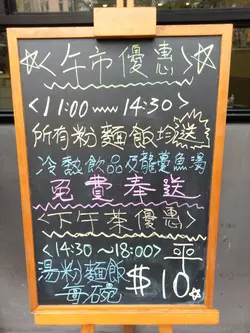 <午市優惠>
<11:00~14:30>
所有粉麵飯均送
冷熱飲品及龍躉魚湯
免費奉送
<下午茶優惠>
<14:30~18:00>平
湯粉麵飯
每碗 $10